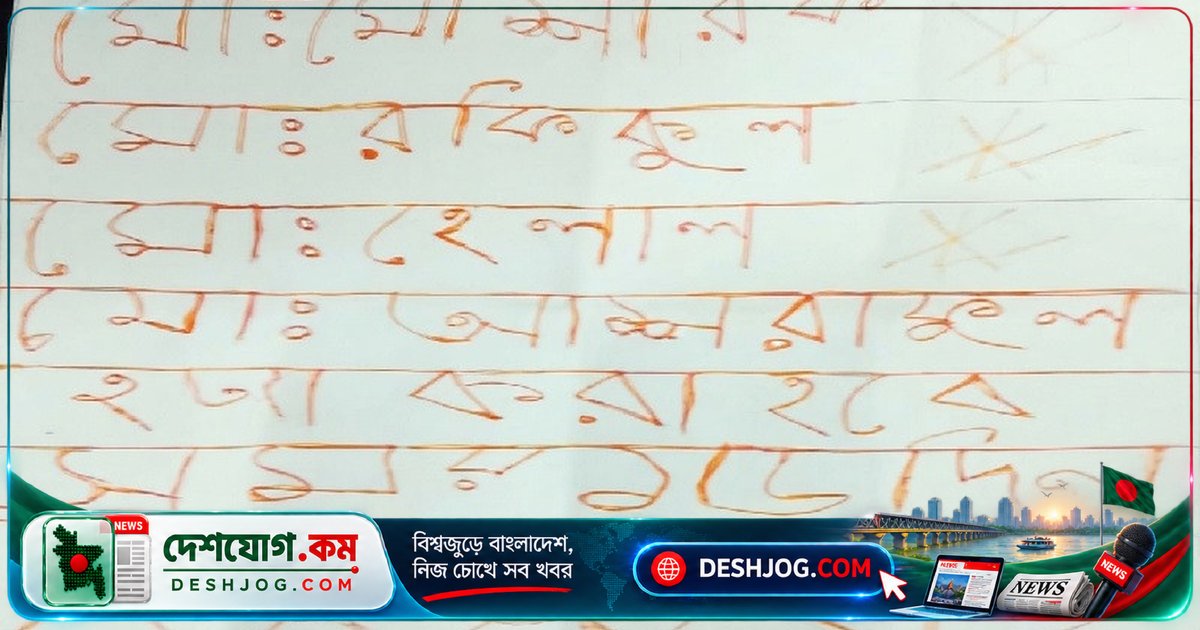 মোঃ
মোঃ রফিকুল
মোঃ হেলাল
মোঃ আশরাফুল
হত্যা করা হবে
সময় ১৫ দিন
NEWS
দেশযোগ.কম
DESHJOG.COM
বিশ্বজুড়ে বাংলাদেশ,
নিজ চোখে সব খবর
DESHJOG.COM
NEWS
NEWS